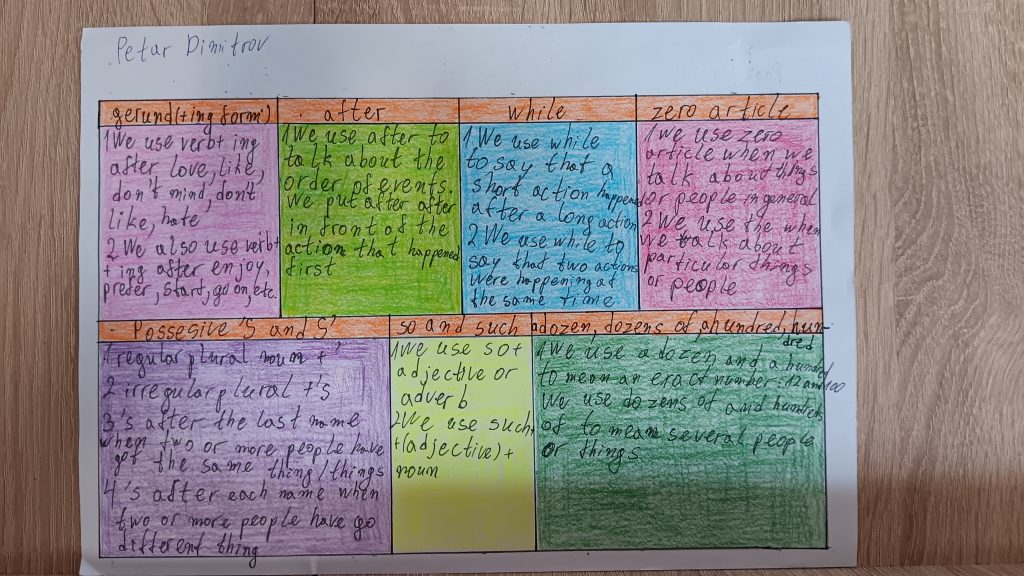 Petar Dimitrov
gerund(+ing form)
1We use verb+ ing
after, love, like,
don't mind, don't
like, hate
2 We also use verb+
+ ing after enjoy,
prefer, start, go on, etc.
after
1,We use after to
talk about the
order of events.
We put after after
in front of the
action that happened
first
while
1,We use while
to say that a
short action happened
after a long action
2 We use while to
say that two actions
were happening at
the same time
zero article
1we use zero
article when we
talk about things
or people in general
2 We use the when
we talk about
particular things
or people
Possesive 's and s'
1regular plural noun +'
2 irregular plural +'s
3's after the last name
when two or more people have
got the same thing/things
4's after each name when
two or more people have go
different thing
so and such
1We use so+
adjective or
adverb
2We use such+
+(adjective)+
noun
adozen, dozens of ahundred, hun-
dred
1We use adozen and a hundred
to mean an exact number: 12 and 100
We use dozens of and
of to mean several people
or things